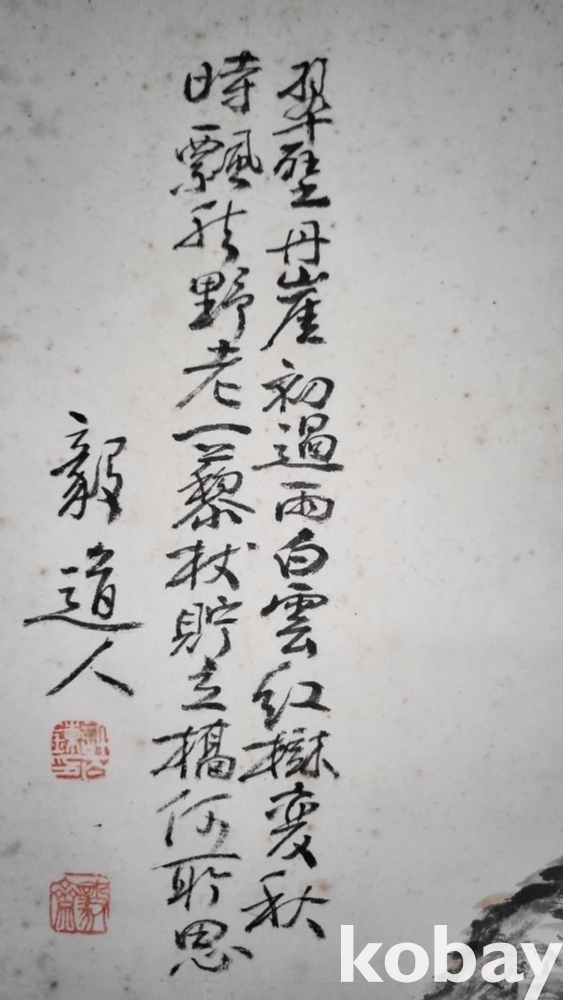 翠壁丹崖初過雨白雲紅樹變秋
時飄然野老一藜杖貯立橋何所思
毅道人
kobay